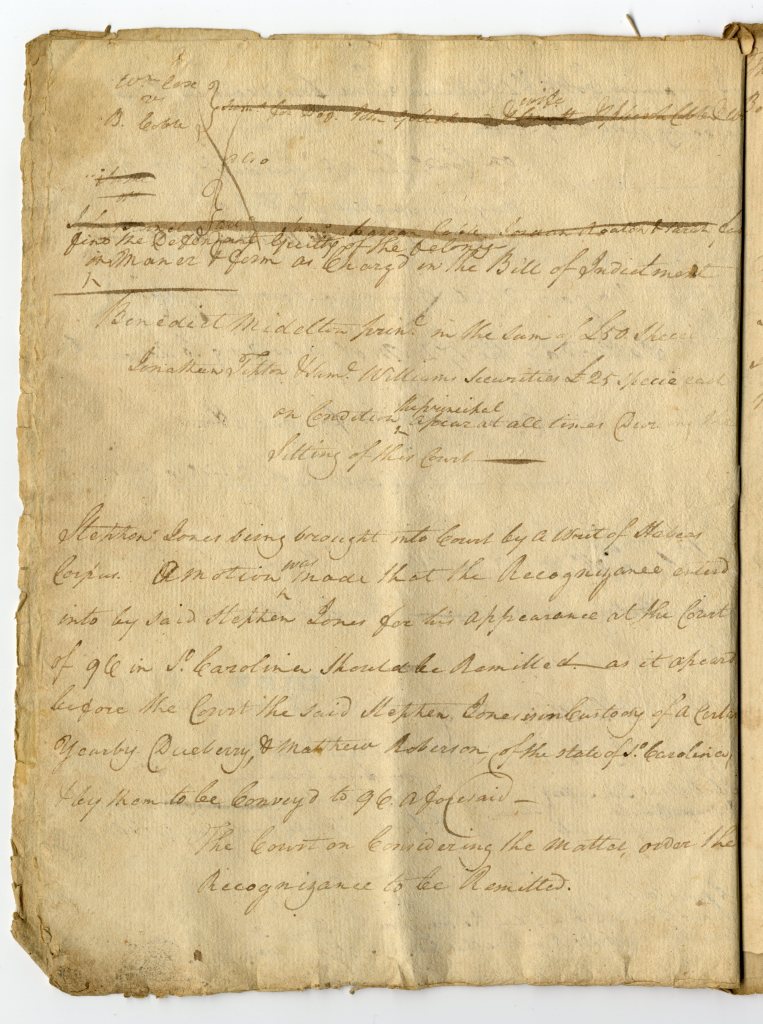 Wm Cox
vs
B. Coble
wife
also
find the Defendant Guilty of the
in Maner & form as Charg'd in the Bill of Indictment
Benedict Middelton prinl. in the sum of £50 Specie
Jonathan Tipton & Saml. Williams Securities £25 specie each
the principal
on Condition apear at all times During the
Sitting of this Court
Stephen Jones being brought into Court by a Writ of Habeas
was
Corpus. A motion made that the Recognizance enterd
into by said Stephen Jones for his appearance at the Court
of 96 in So. Carolina Should be Remitted as it apeard
before the Court the said Stephen Jones is in Custody of a
Yearby Dueberry, & Matthew Roberson of the state of So. Carolina
& by them to be Convey'd to 96 aforesaid
The Court on Considering the matter, order the
Recognizance to be Remitted.